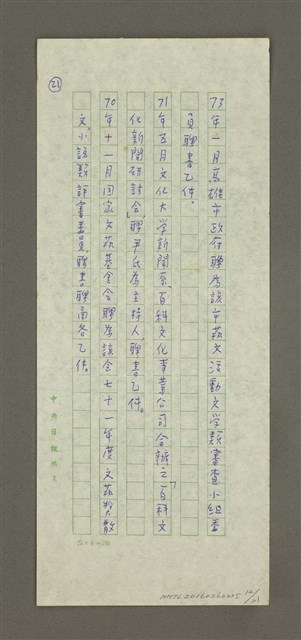 (21)
73年一月高雄市政府聘為該市藝文活動文學類審查小組委
員聘書乙件。
71年五月文化大學新聞系、百科文化事業公司合辦之「百科文
化新聞研討會」聘尹氏為主持人,聘書乙件。
70年十一月国家文藝基金会聘為該会七十一年度文藝獎散
文、小說類評審委員,聘書、聘函各乙件。
中央日報稿
NMTL20160260205
12/21